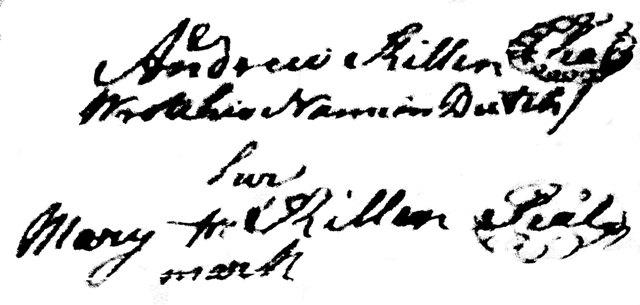 Andrew Killen Seal
Wrote his Name in Dutch
her
Mary + Killen Seal
mark